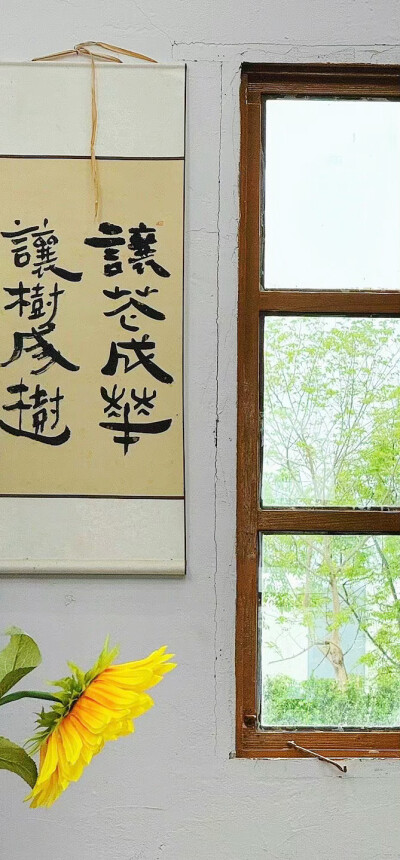 讓花成華
讓樹成樹